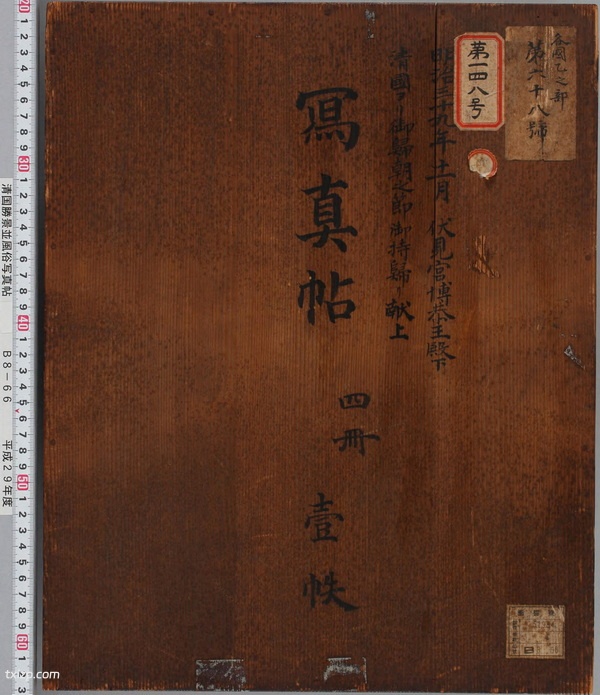 各國乙之部
第六十八號
第一四八号
明治三十九年十一月 伏見宮博恭王殿下
清國ヨリ御歸朝之節御持歸リ献上
寫真帖
四冊
壹帙
清国勝景並風俗写真帖 B8-66 平成29年度
20 1 2 3 4 5 6 7 8 9 30 1 2 3 4 5 6 7 8 9 40 1 2 3 4 5 6 7 8 9 50 1 2 3 4 5 6 7 8 9 60 1 2 3
txlzp.com